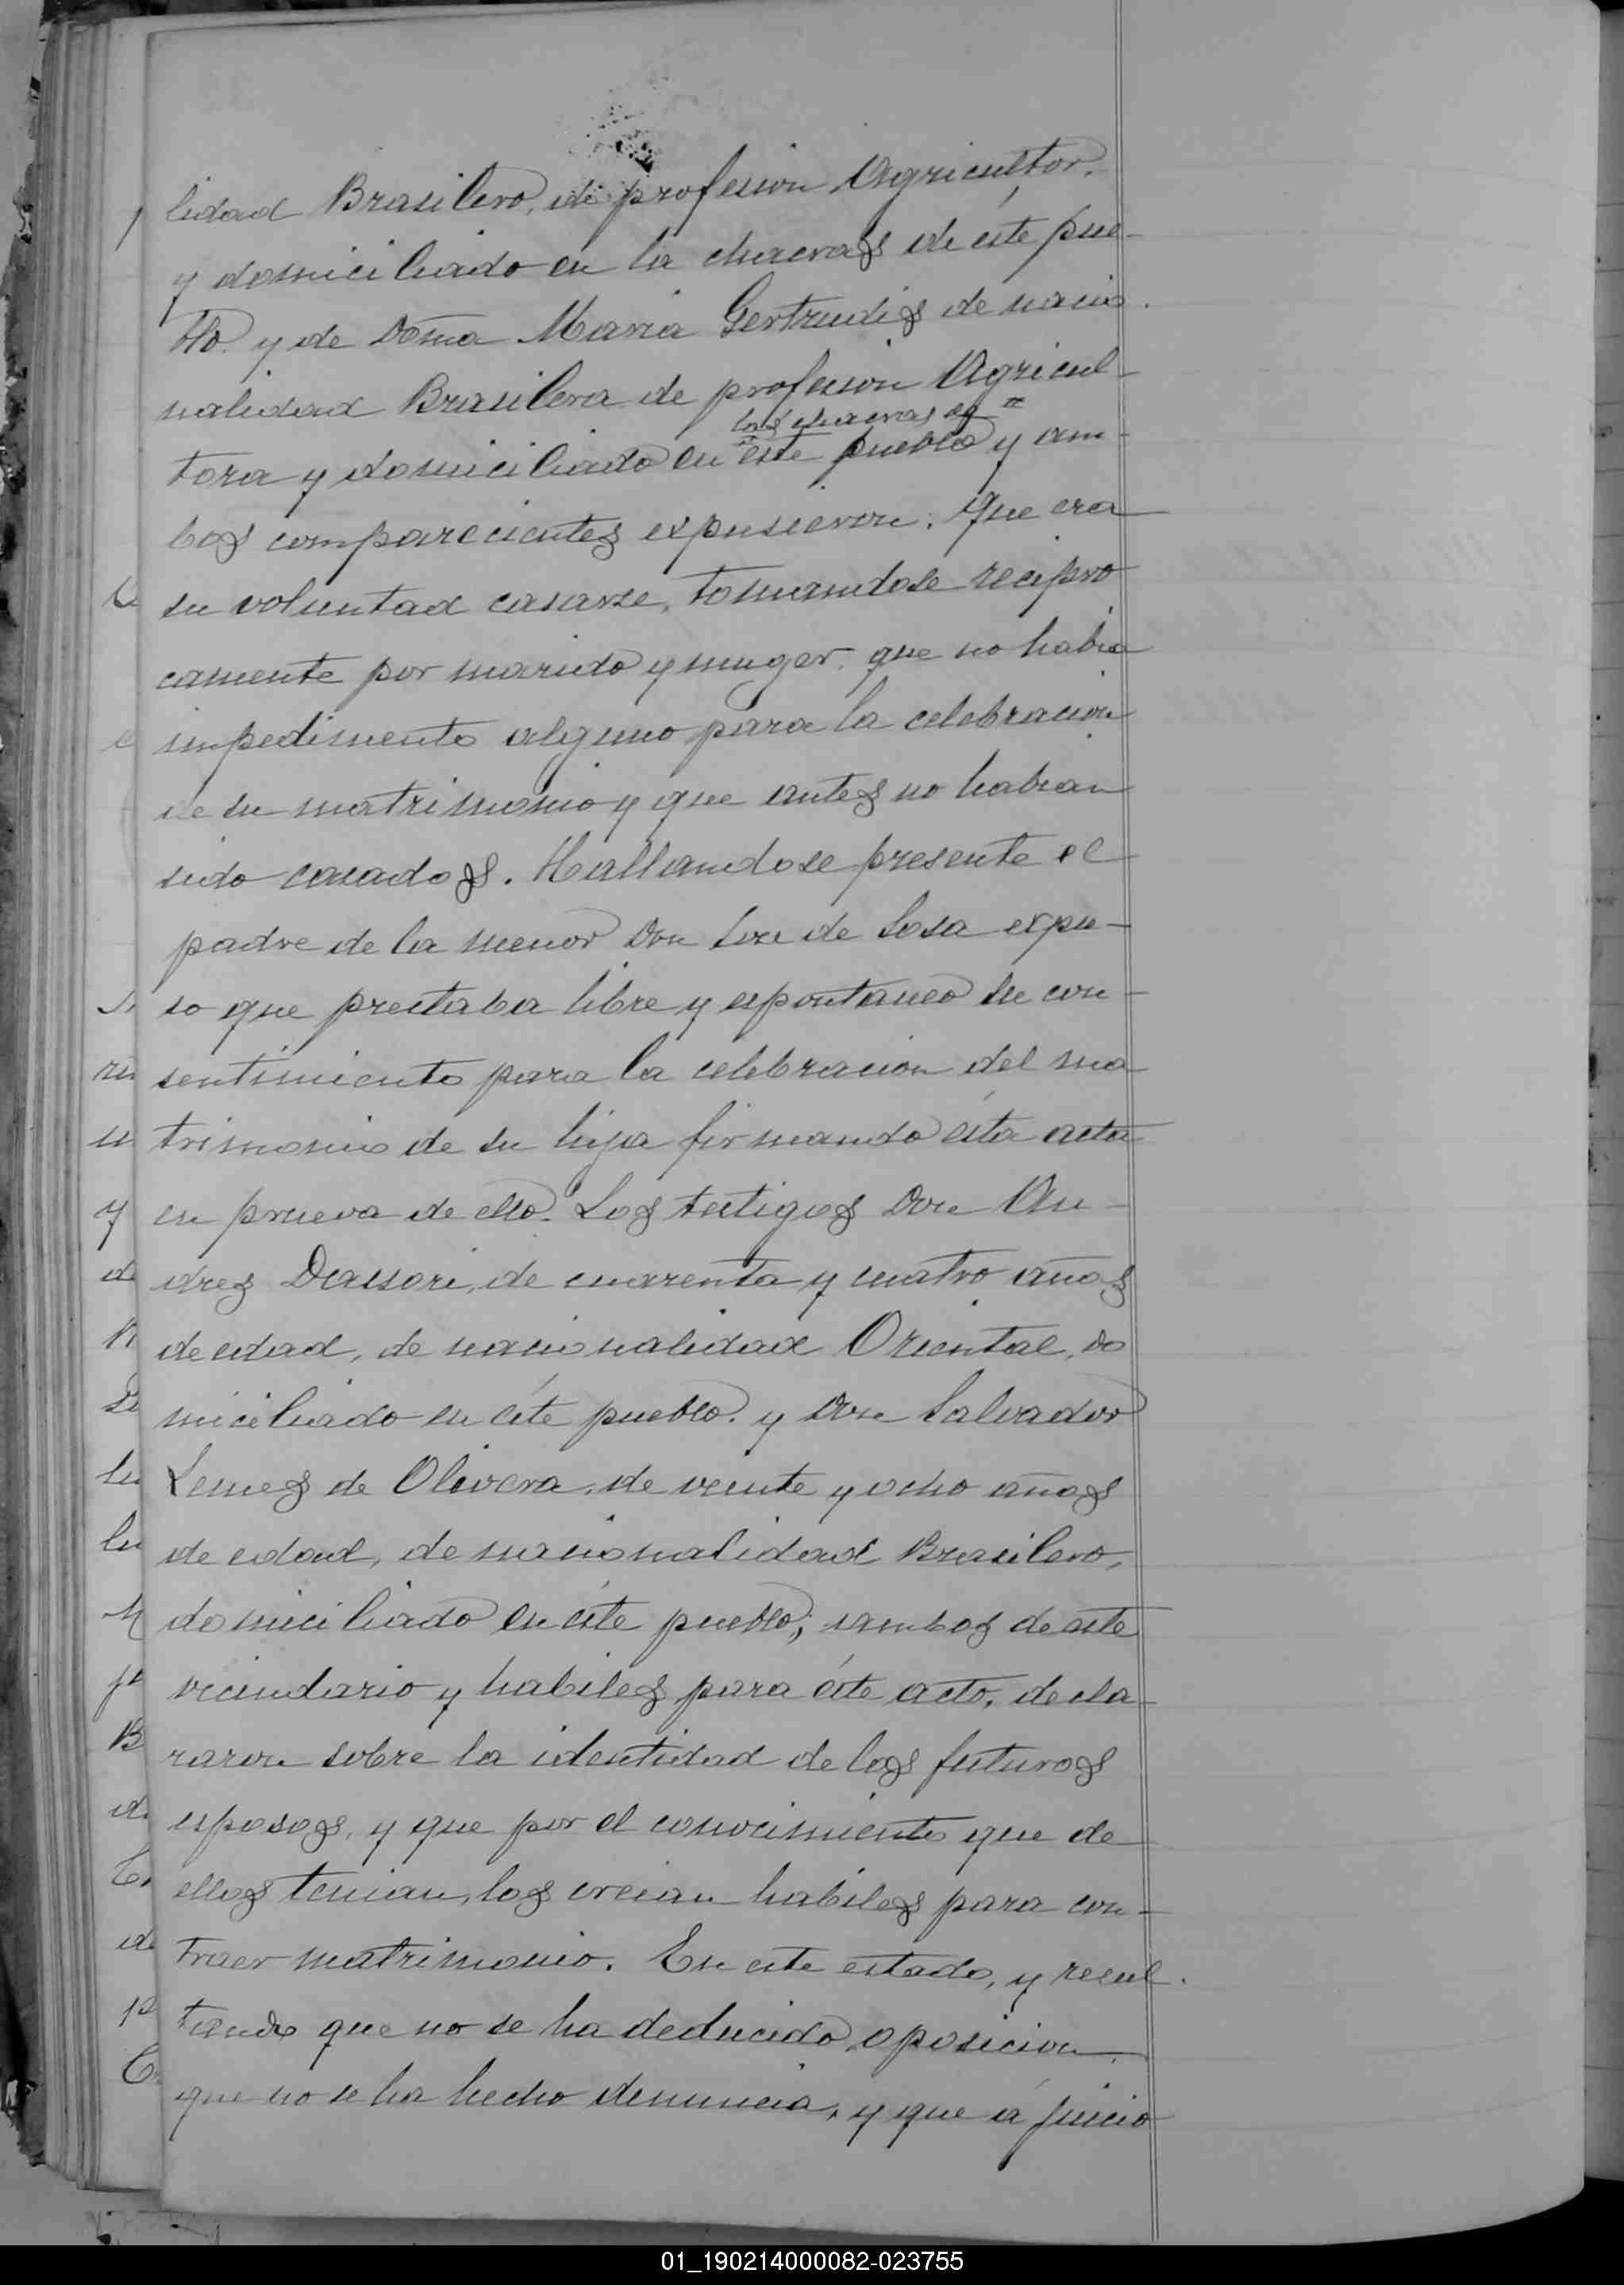 lidad Brasilero, de profesion Agricultor.
y domiciliado en la chacras de éste pue-
blo. y de Doña Maria Gertrudis de nacio-
nalidad Brasilera de profesion Agricul-
las chacras de
tora y domiciliado en este pueblo y am-
bos comparecientes expusieron: Que era
su voluntad casarse, tomandose recipro
camente por marido y muger. que no habia
impedimento alguno para la celebracion
de su matrimonio y que antes no habian
sido casados. Hallandose presente el
padre de la menor Don de Sosa expu-
so que prestaba libre y espontaneo su con-
sentimiento para la celebracion del ma-
trimonio de su hija firmando ésta acta
en prueva de ello. Los testigos Don An-
dres Dassori, de cuarenta y cuatro años
de edad, de nacionalidad Oriental, do
miciliado en éste pueblo. y Don Salvador
Lemes de Olivera, de veinte y ocho años
de edad, de nacionalidad Brasilero,
domiciliado en éste pueblo; ambos de este
vecindario y habiles para éste acto, decla-
raron sobre la identidad de los futuros
esposos, y que por el conocimiento que de
ellos tenian, los creian habiles para con-
traer matrimonio. En este estado, y resul-
tando que no se ha deducido oposicion
que no se ha hecho denuncia, y que á juicio
01_190214000082-023755